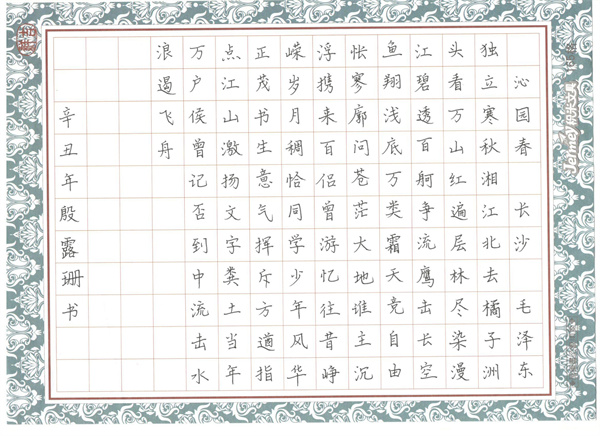 沁园春 长沙 毛泽东
独立寒秋湘江北去橘子洲
头看万山红遍层林尽染漫
江碧透百舸争流鹰击长空
鱼翔浅底万类霜天竞自由
怅寥廓问苍茫大地谁主沉
浮携来百侣曾游忆往昔峥
嵘岁月稠恰同学少年风华
正茂书生意气挥斥方遒指
点江山激扬文字粪土当年
万户侯曾记否到中流击水
浪遏飞舟
辛丑年殷露珊书